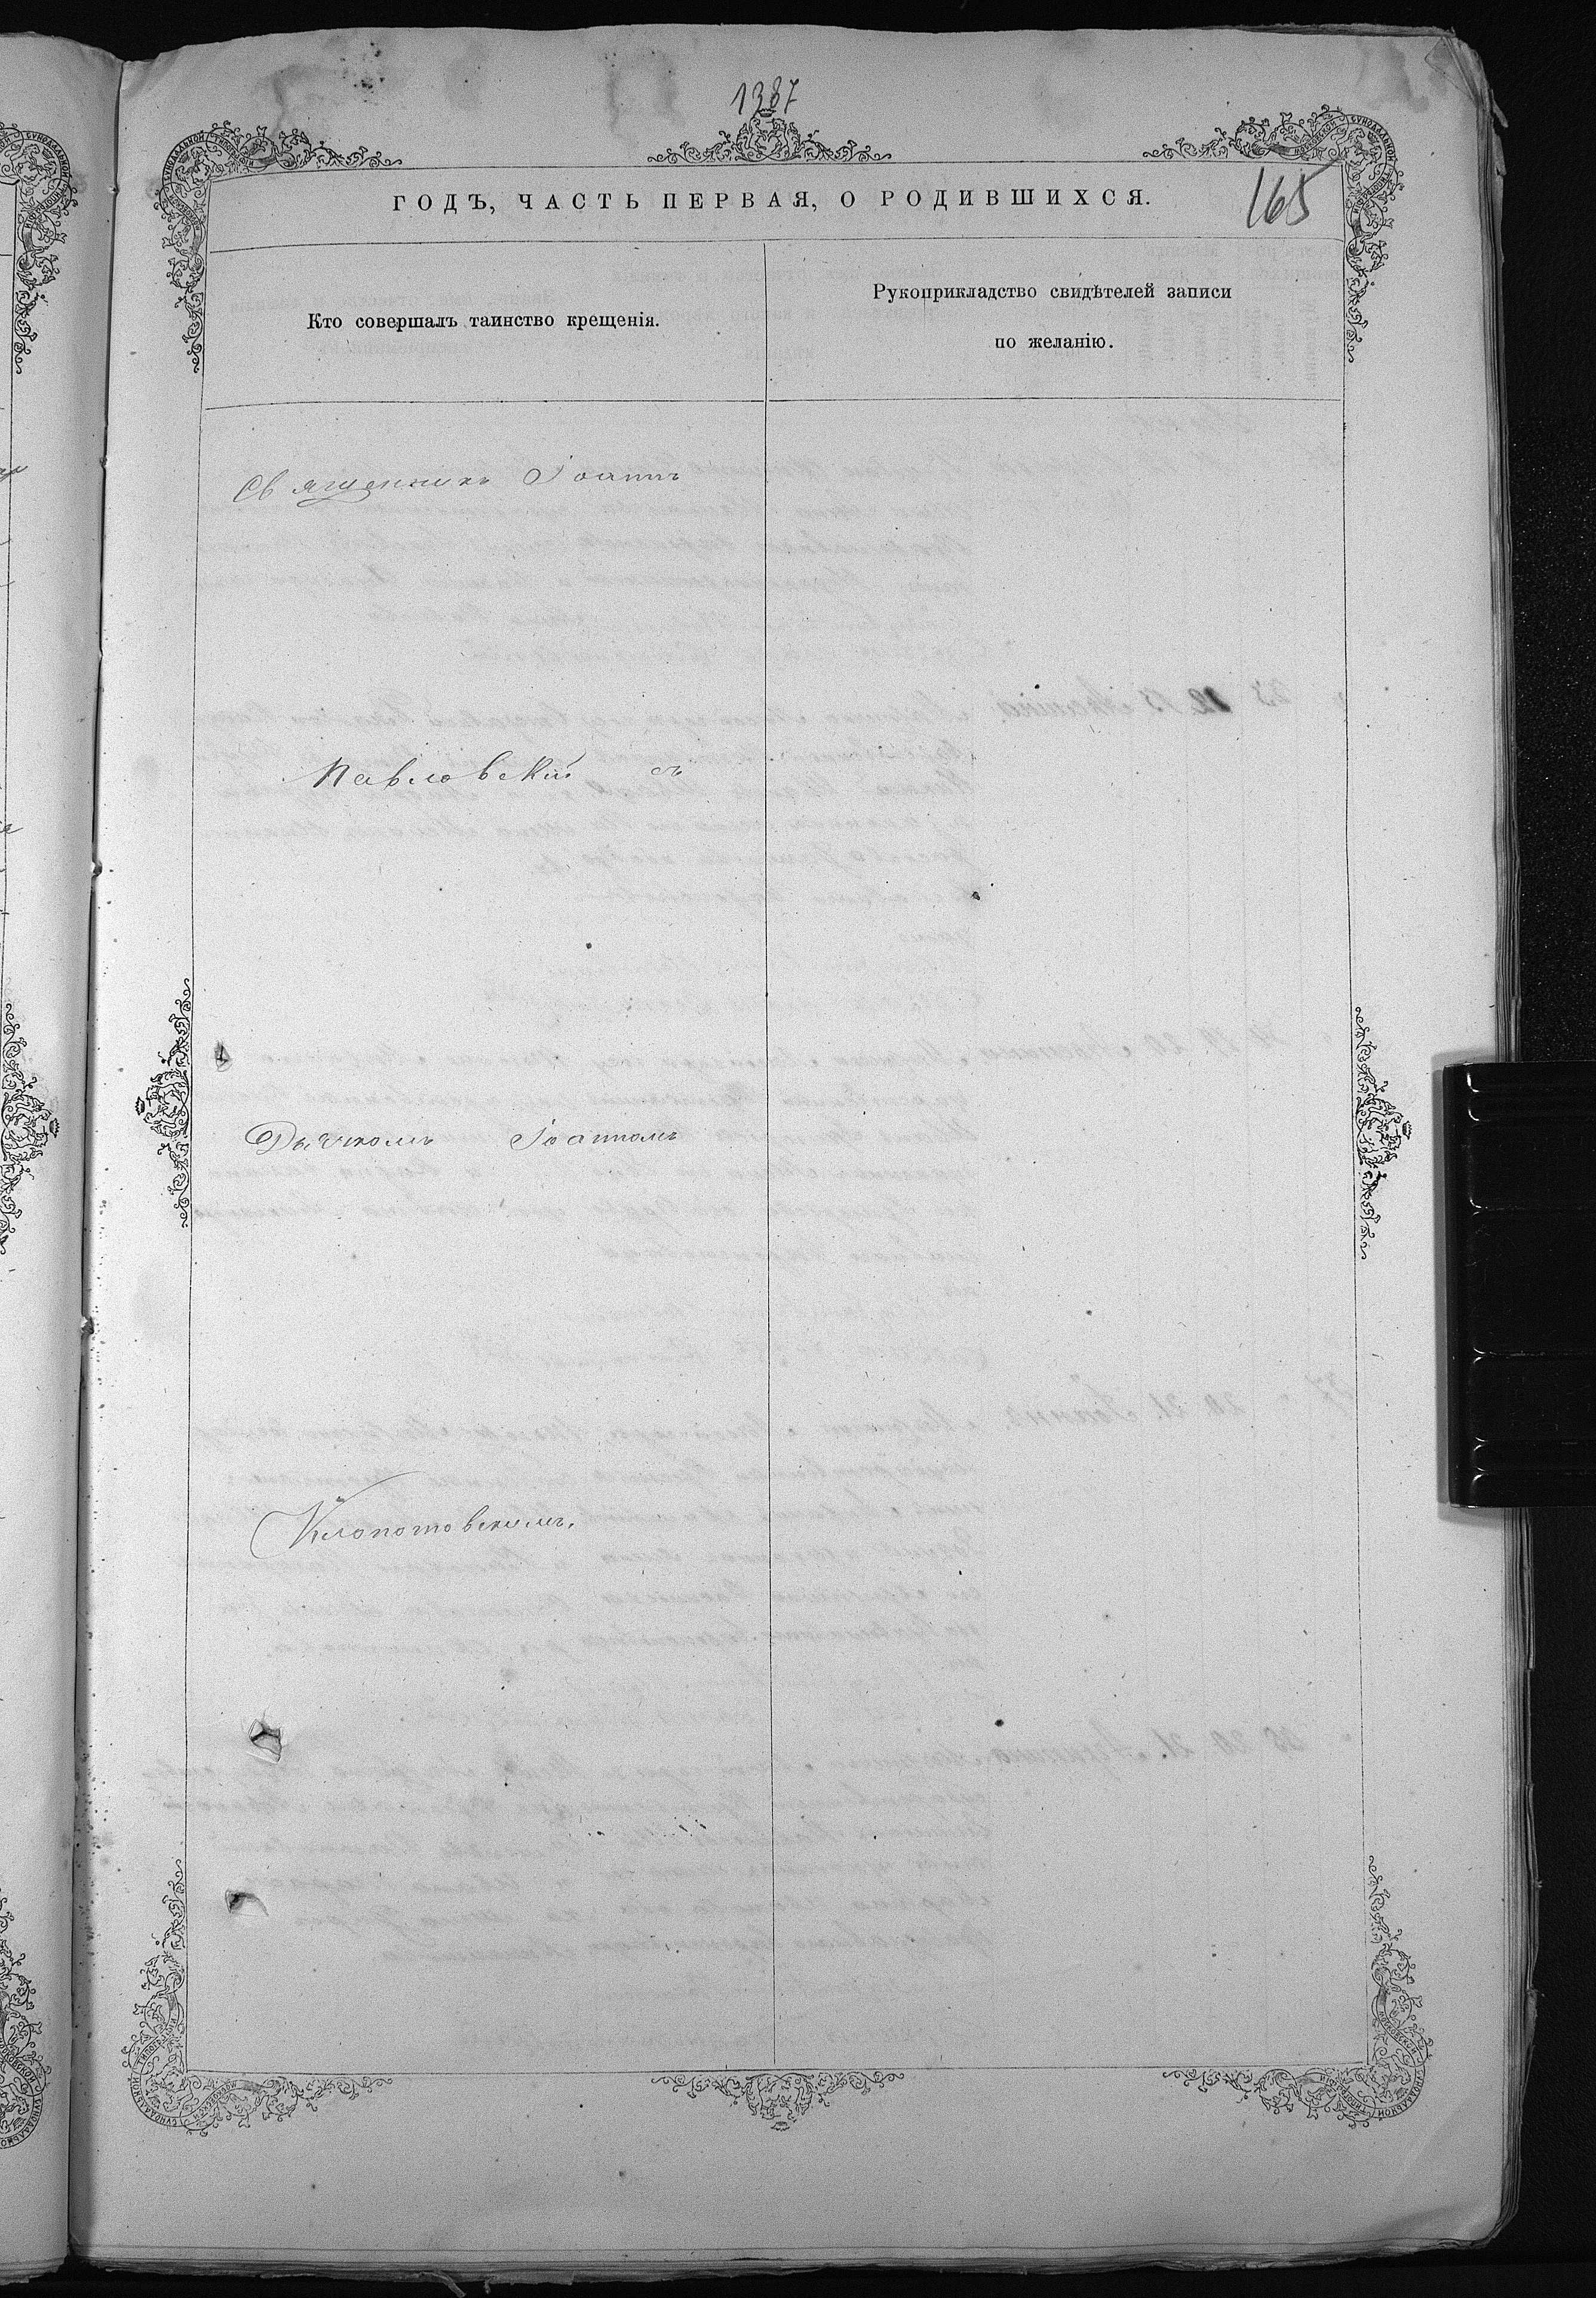 1387
ГОДЪ, ЧАСТЬ ПЕРВАЯ, О РОДИВШИХСЯ.
165
Кто совершалъ таинство крещенія.
Рукоприкладство свидѣтелей записи
по желанію.
Священникъ Іоаннъ
Павловскій съ
Дьячкомъ Іоанномъ
Клопотовскимъ.